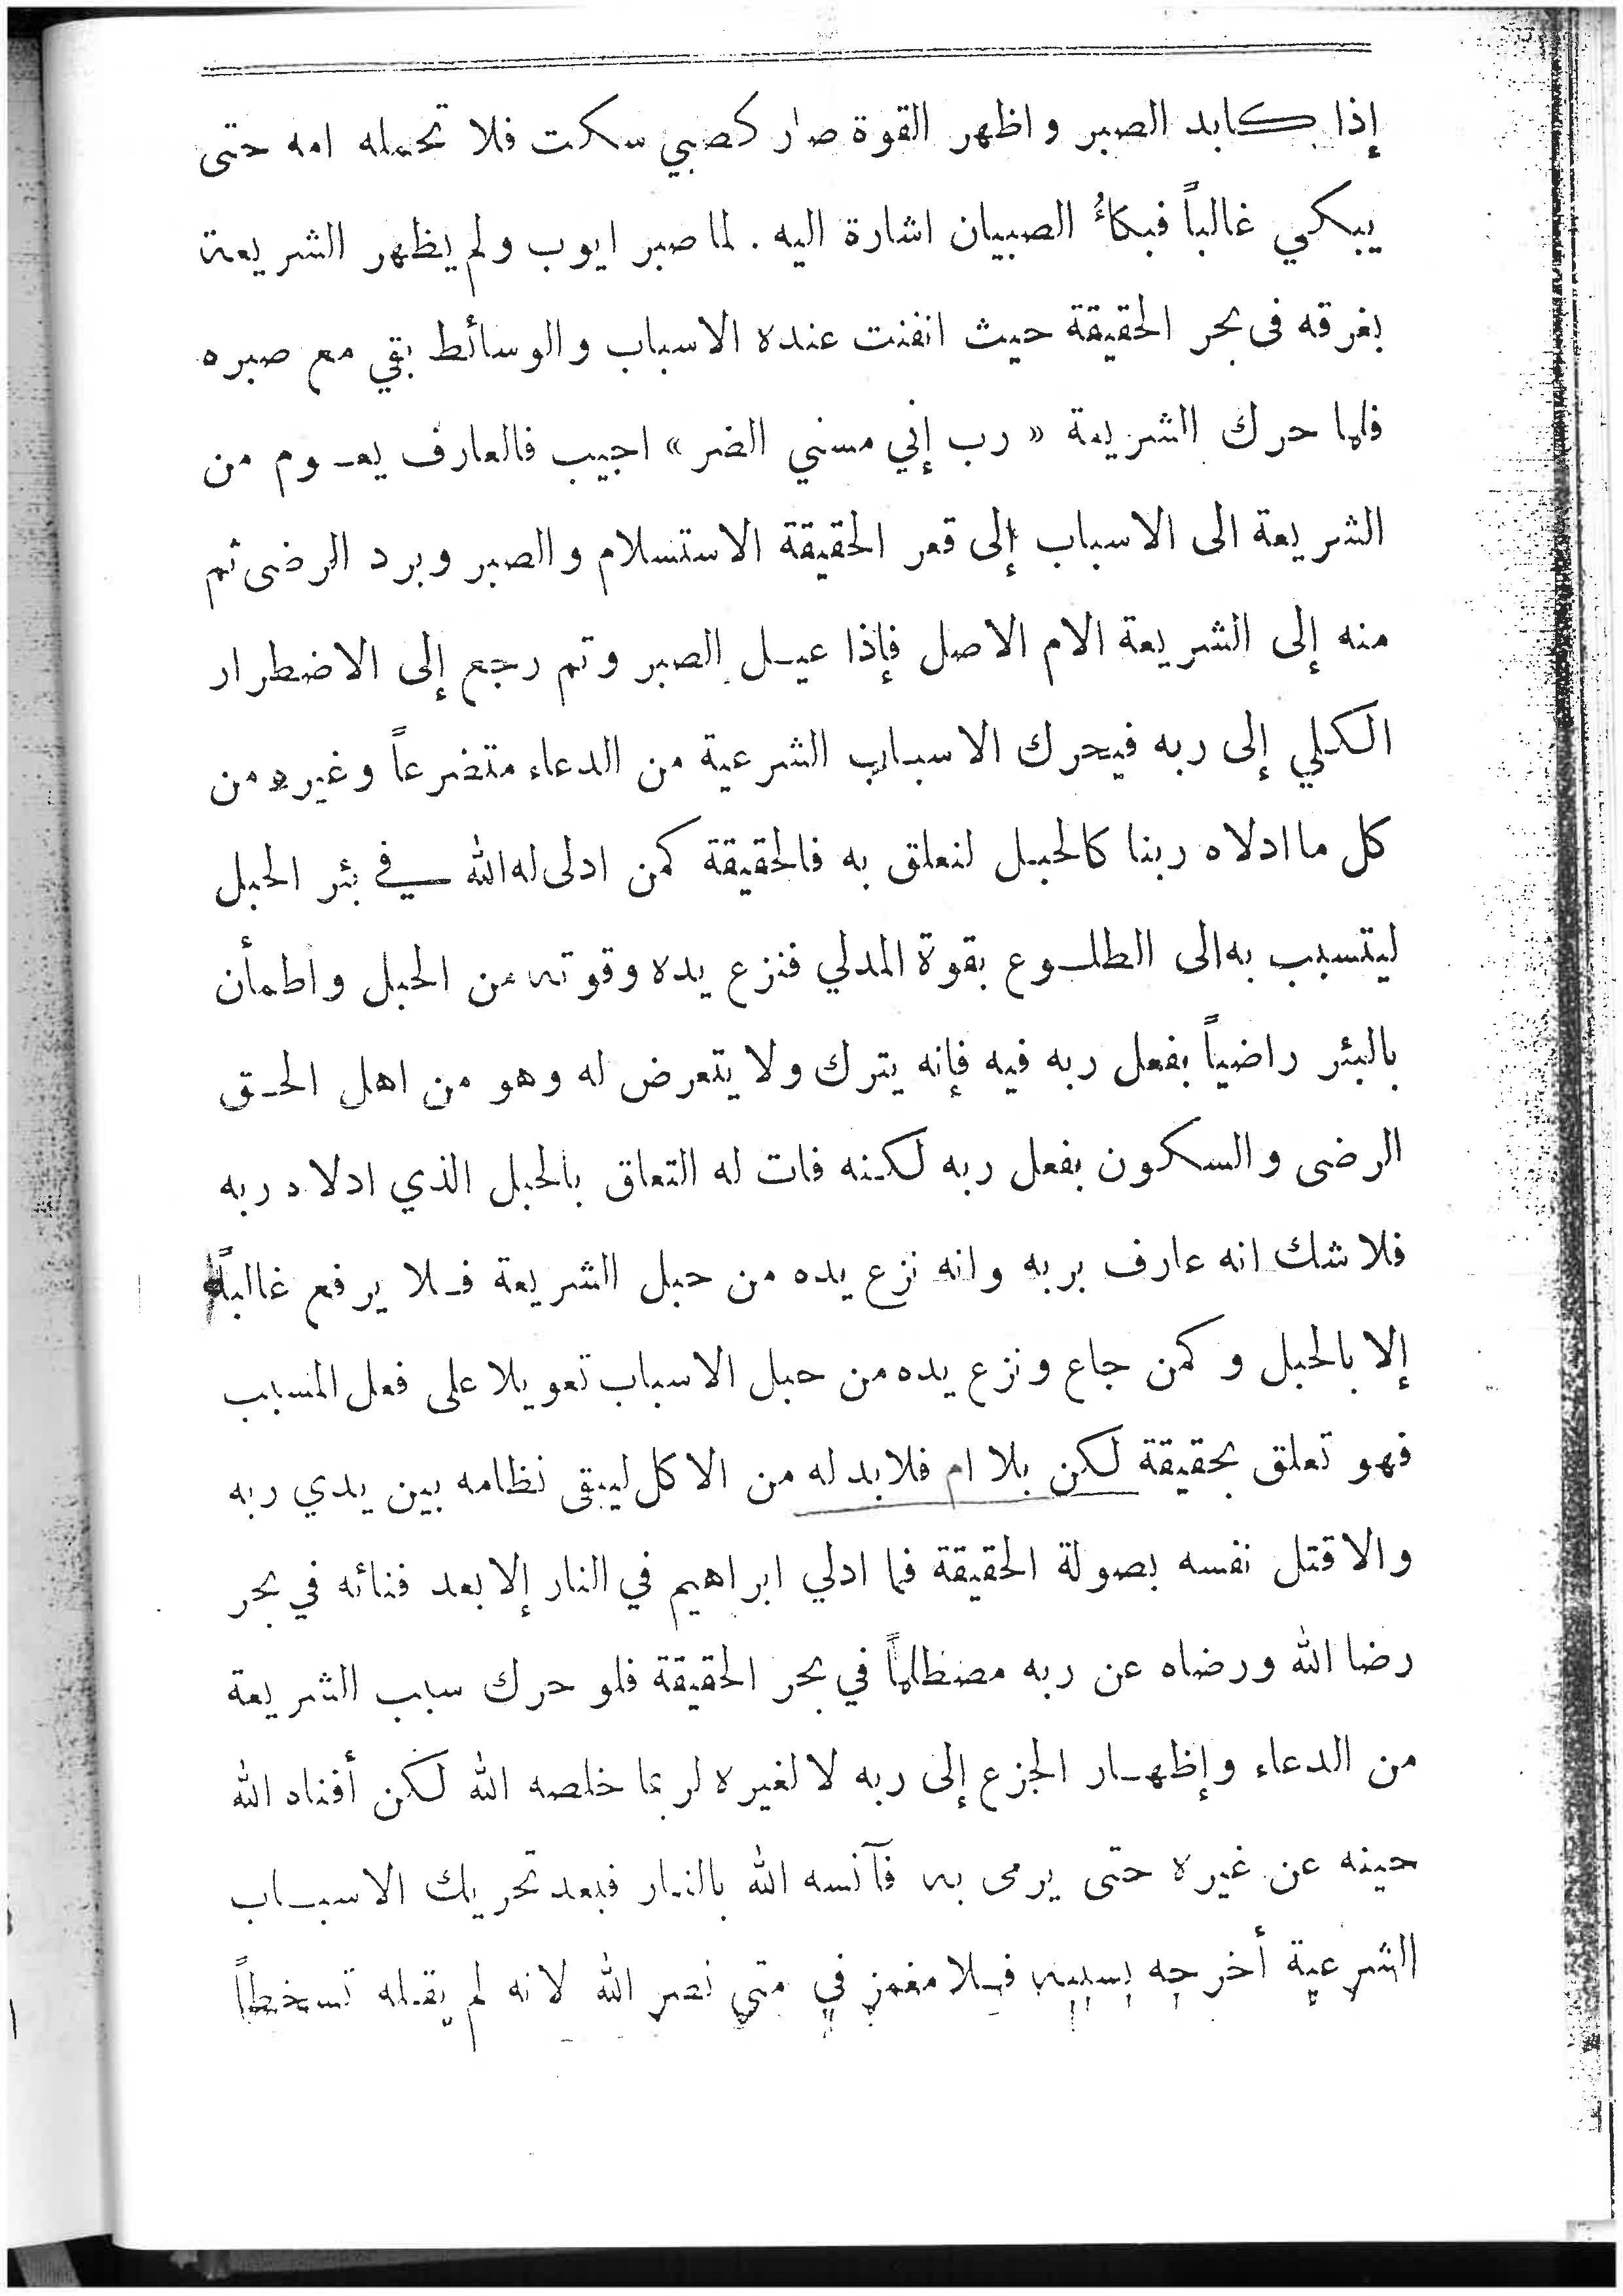 إذا كابد الصبر واظهر القوة صار كصبي سكت فلا تحمله امه حتى
يبكي غالباً فبكاءُ الصبيان اشارة اليه . لما صبر ايوب ولم يظهر الشريعة
بغرقه فى بحر الحقيقة حيث انفنت عنده الاسباب والوسائط بقي مع صبره
فلما حرك الشريعة « رب إني مسني الضر » اجيب فالعارف يعـوم من
الشريعة الى الاسباب إلى قعر الحقيقة الاستسلام والصبر وبرد الرضى ثم
منه إلى الشريعة الام الاصل فإذا عيـل الصبر وتم رجع إلى الاضطرار
الكلي إلى ربه فيحرك الاسباب الشرعية من الدعاء متضرعاً وغيره من
كل ما ادلاه ربنا كالحبـل لنعلق به فالحقيقة كمن ادلى له الله في بئر الحبل
ليتسبب به الى الطلـوع بقوة المدلي فنزع يده وقوته من الحبل واطمأن
بالبئر راضياً بفعل ربه فيه فإنه يترك ولا يتعرض له وهو من اهل الحـق
الرضى والسكون بفعل ربه لكنه فات له التعلق بالحبل الذي ادلاه ربه
فلا شك انه عارف بربه وانه نزع يده من حبل الشريعة فـلا يرفع غالباً
إلا بالحبل وكمن جاع ونزع يده من حبل الاسباب تعويلا على فعل المسبب
فهو تعلق بحقيقة لكن بلا ام فلا بد له من الاكل ليبقى نظامه بين يدي ربه
والا قتل نفسه بصولة الحقيقة فما ادلي ابراهيم في النار إلا بعد فنائه في بحر
رضا الله ورضاه عن ربه مصطلماً في بحر الحقيقة فلو حرك سبب الشريعة
من الدعاء وإظهـار الجزع إلى ربه لا لغيره لربما خلصه الله لكن أفناه الله
حينه عن غيره حتى يرمى به فآنسه الله بالنـار فبعد تحريك الاسبـاب
الشرعية أخرجه بسببه فـلا مغمز في متى نصر الله لانه لم يقـله تسخطاً